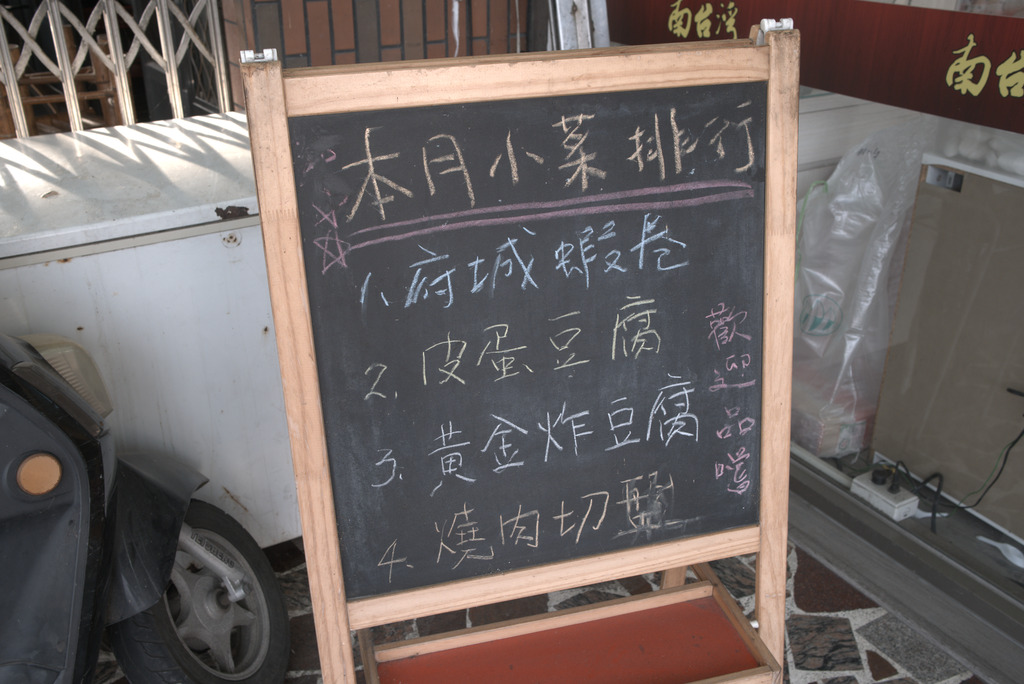 南台灣
南台
本月小菜排行
1. 府城蝦卷
2. 皮蛋豆腐
3. 黃金炸豆腐
4. 燒肉切盤
歡迎品嚐